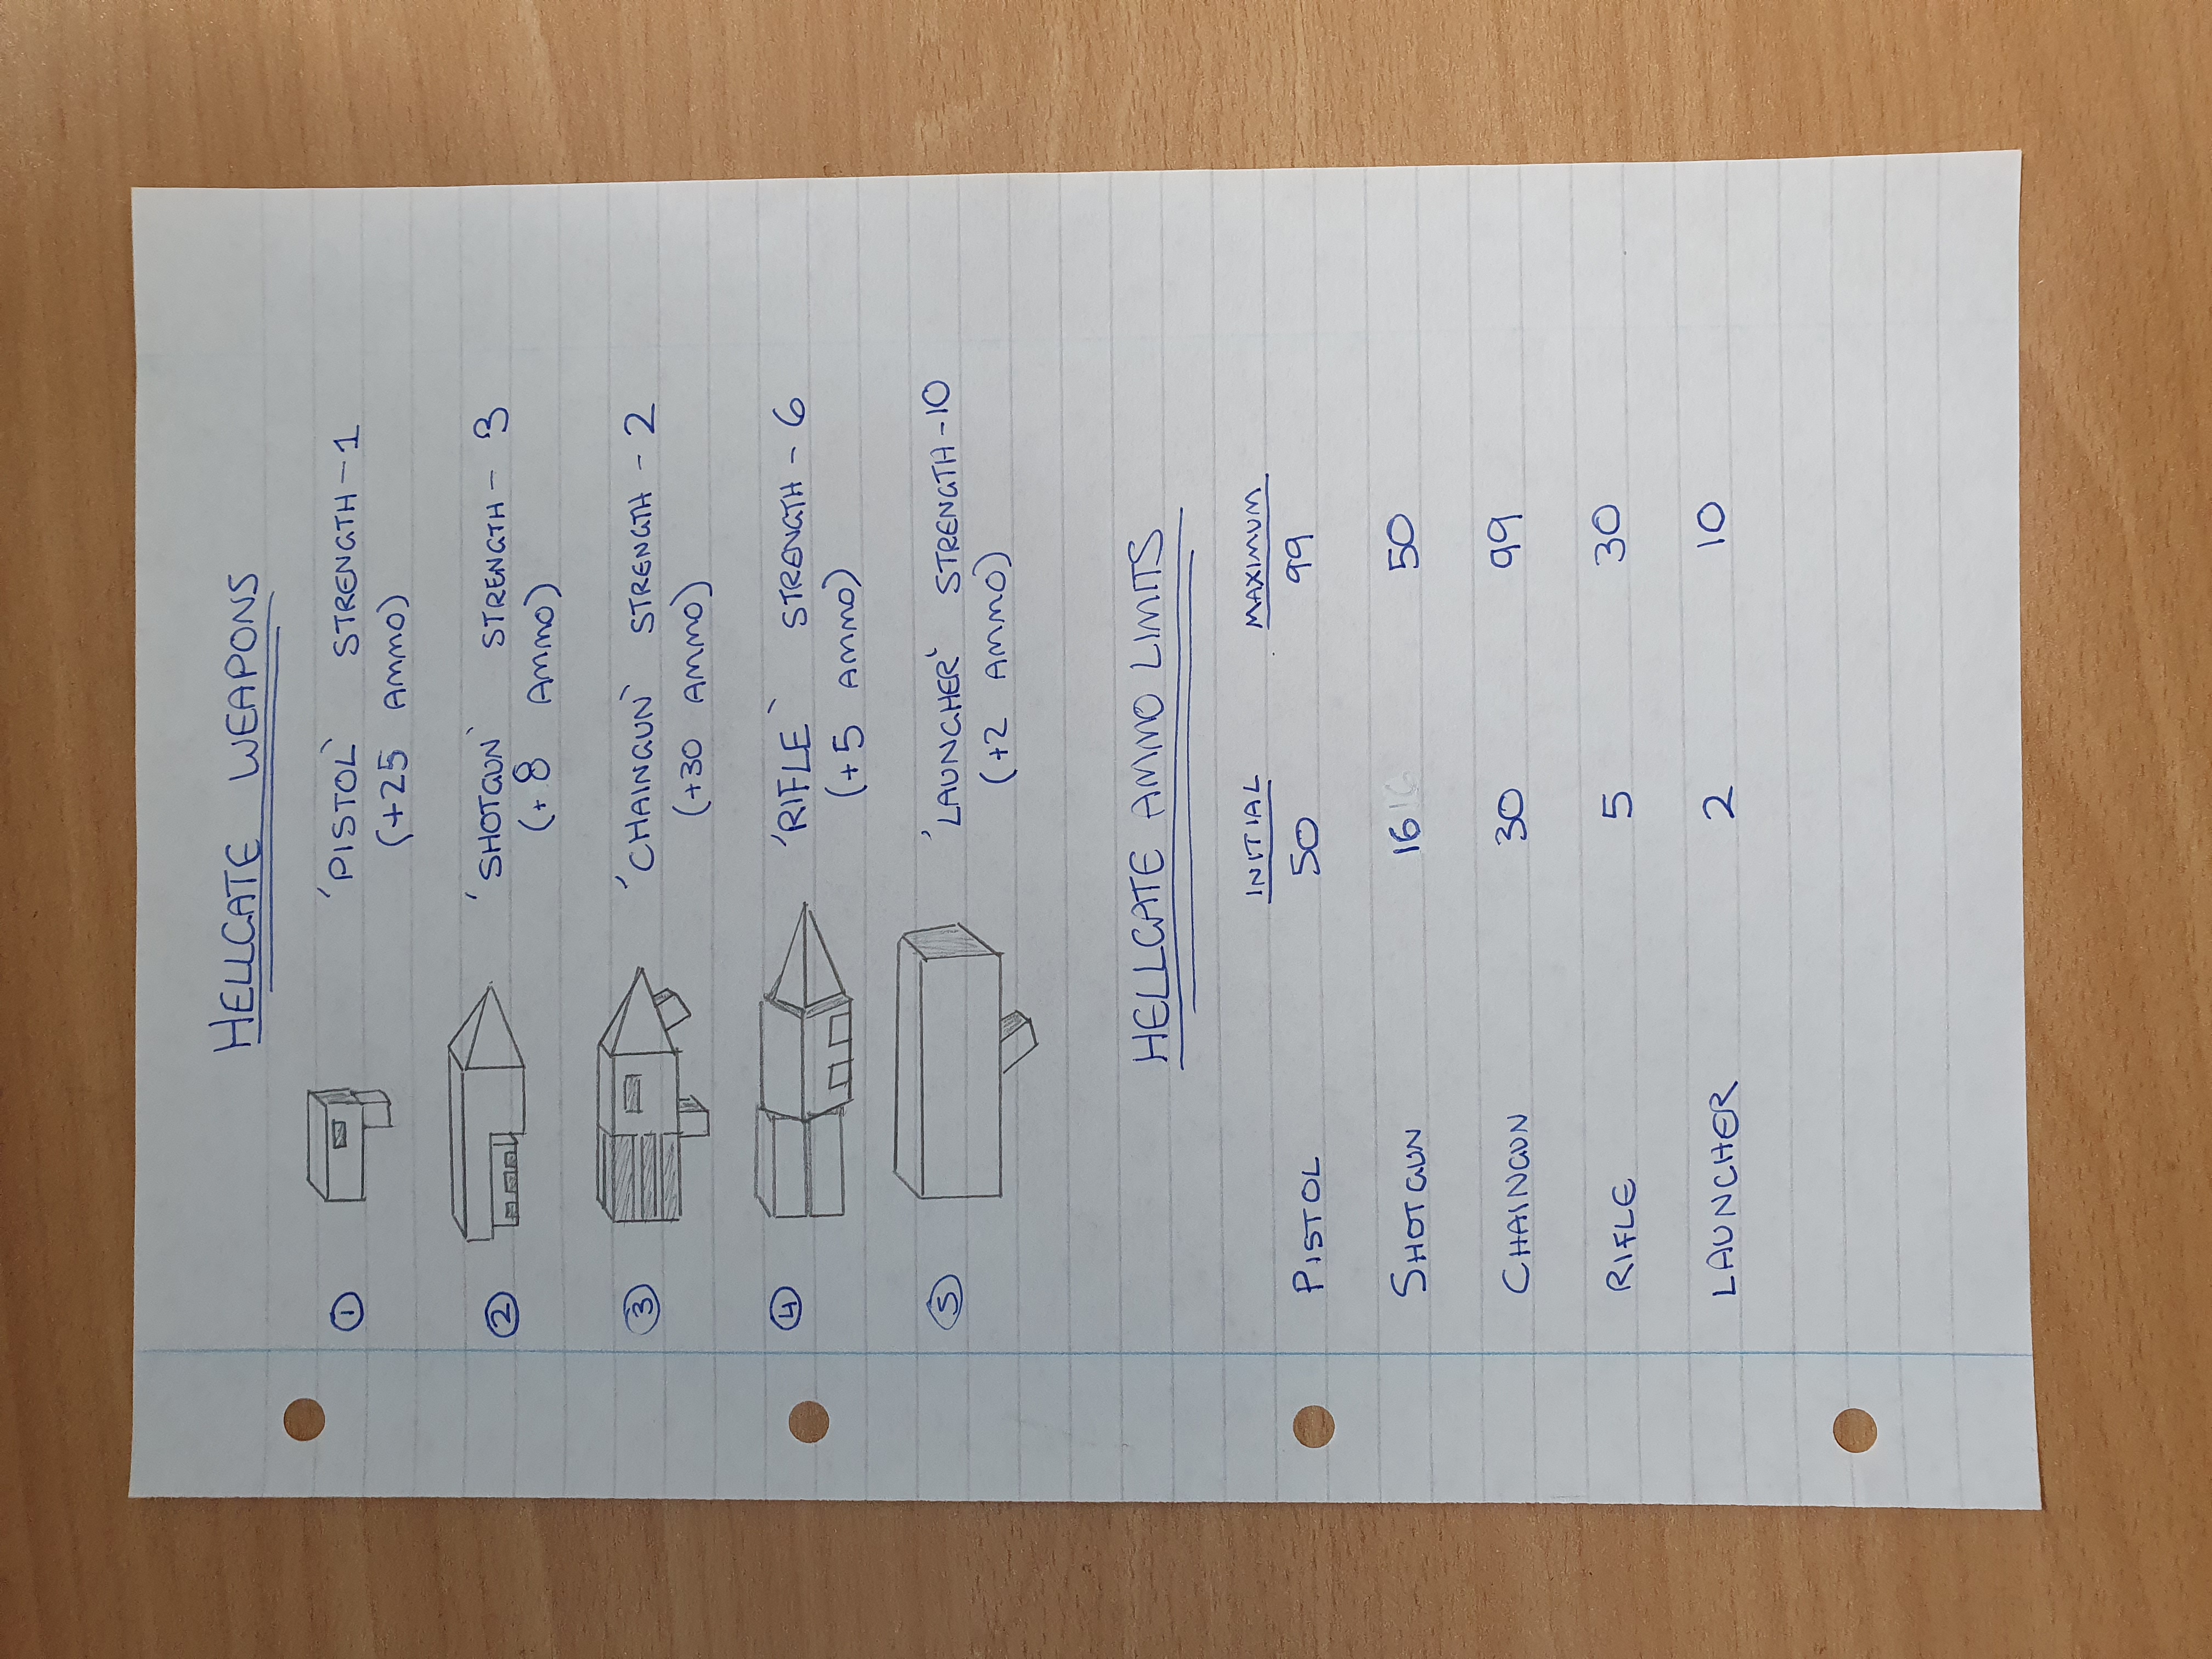 HELLGATE WEAPONS
1 'PISTOL' STRENGTH - 1
(+25 AMMO)
2 'SHOTGUN' STRENGTH - 3
(+8 AMMO)
3 'CHAINGUN' STRENGTH - 2
(+30 AMMO)
4 'RIFLE' STRENGTH - 6
(+5 AMMO)
5 'LAUNCHER' STRENGTH - 10
(+2 AMMO)
HELLGATE AMMO LIMITS
INITIAL MAXIMUM
PISTOL 50 99
SHOTGUN 16 16 50
CHAINGUN 30 99
RIFLE 5 30
LAUNCHER 2 10